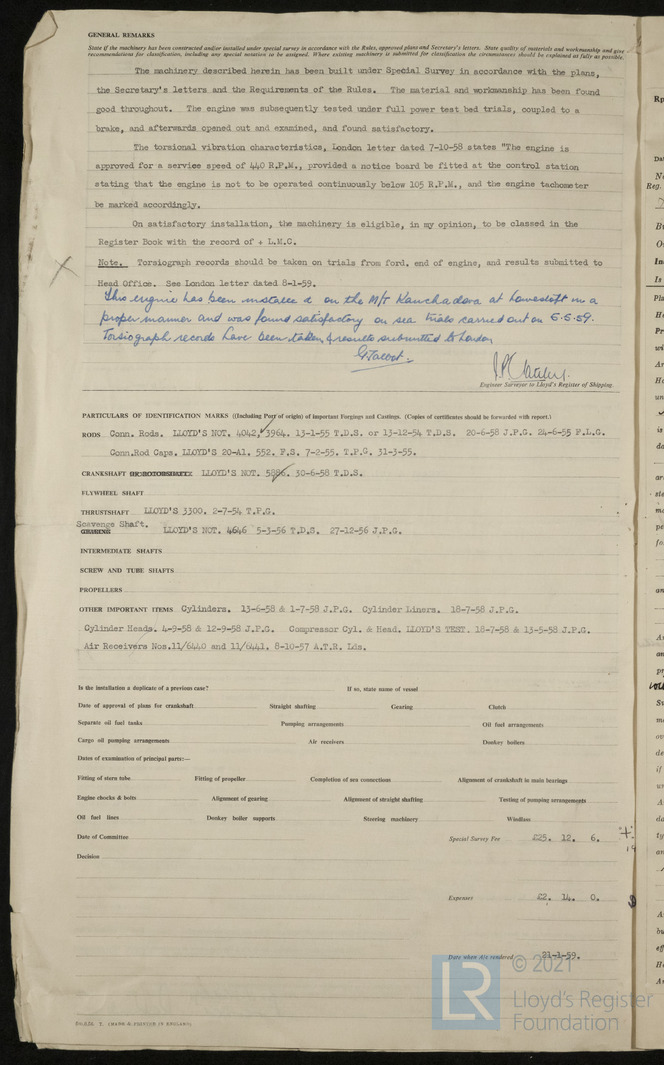 GENERAL REMARKS
State if the machinery has been constructed and/or installed under special survey in accordance with the Rules, approved plans and Secretary's letters. State quality of materials and workmanship and give
recommendations for classification, including any special notation to be assigned. Where existing machinery is submitted for classification the circumstances should be explained as fully as possible.
The machinery described herein has been built under Special Survey in accordance with the plans,
the Secretary's letters and the Requirements of the Rules. The material and workmanship has been found
good throughout. The engine was subsequently tested under full power test bed trials, coupled to a
brake, and afterwards opened out and examined, and found satisfactory.
The torsional vibration characteristics, London letter dated 7-10-58 states "The engine is
approved for a service speed of 440 R.P.M., provided a notice board be fitted at the control station
stating that the engine is not to be operated continuously below 105 R.P.M., and the engine tachometer
be marked accordingly.
On satisfactory installation, the machinery is eligible, in my opinion, to be classed in the
Register Book with the record of + L.M.C.
Note. Torsiograph records should be taken on trials from ford. end of engine, and results submitted to
Head Office. See London letter dated 8-1-59.
This engine has been installed on the M/T at Lowestoft in a
proper manner and was found satisfactory on sea trials carried out on 6.5.59.
Torsiograph records have been taken & results submitted to London
Engineer Surveyor to Lloyd's Register of Shipping.
PARTICULARS OF IDENTIFICATION MARKS (Including Port of origin) of Important Forgings and Castings. (Copies of certificates should be forwarded with report.)
RODS Conn. Rods. LLOYD'S NOT. 4042, 3964. 13-1-55 T.D.S. or 13-12-54 T.D.S. 20-6-58 J.P.G. 24-6-55 F.L.G.
Conn.Rod Caps. LLOYD'S 20-A1. 552. F.S. 7-2-55. T.P.G. 31-3-55.
CRANKSHAFT LLOYD'S NOT. 5886. 30-6-58 T.D.S.
FLYWHEEL SHAFT
THRUSTSHAFT LLOYD'S 3300. 2-7-54 T.P.G.
Scavenge Shaft.
GEARING LLOYD'S NOT. 4646 5-3-56 T.D.S. 27-12-56 J.P.G.
INTERMEDIATE SHAFTS
SCREW AND TUBE SHAFTS
PROPELLERS
OTHER IMPORTANT ITEMS Cylinders. 13-6-58 & 1-7-58 J.P.G. Cylinder Liners. 18-7-58 J.P.G.
Cylinder Heads. 4-9-58 & 12-9-58 J.P.G. Compressor Cyl. & Head. LLOYD'S TEST. 18-7-58 & 13-5-58 J.P.G.
Air Receivers Nos.11/6440 and 11/6441. 8-10-57 A.T.R. Lds.
Is the installation a duplicate of a previous case? If so, state name of vessel
Date of approval of plans for crankshaft Straight shafting Gearing Clutch
Separate oil fuel tanks Pumping arrangements Oil fuel arrangements
Cargo oil pumping arrangements Air receivers Donkey boilers
Dates of examination of principal parts:—
Fitting of stern tube Fitting of propeller Completion of sea connections Alignment of crankshaft in main bearings
Engine chocks & bolts Alignment of gearing Alignment of straight shafting Testing of pumping arrangements
Oil fuel lines Donkey boiler supports Steering machinery Windlass
Date of Committee Special Survey Fee £25. 12. 6.
Decision
Expenses £2. 14. 0.
Date when A/c rendered 21-1-59.
LR
© 2021
Lloyd's Register
Foundation